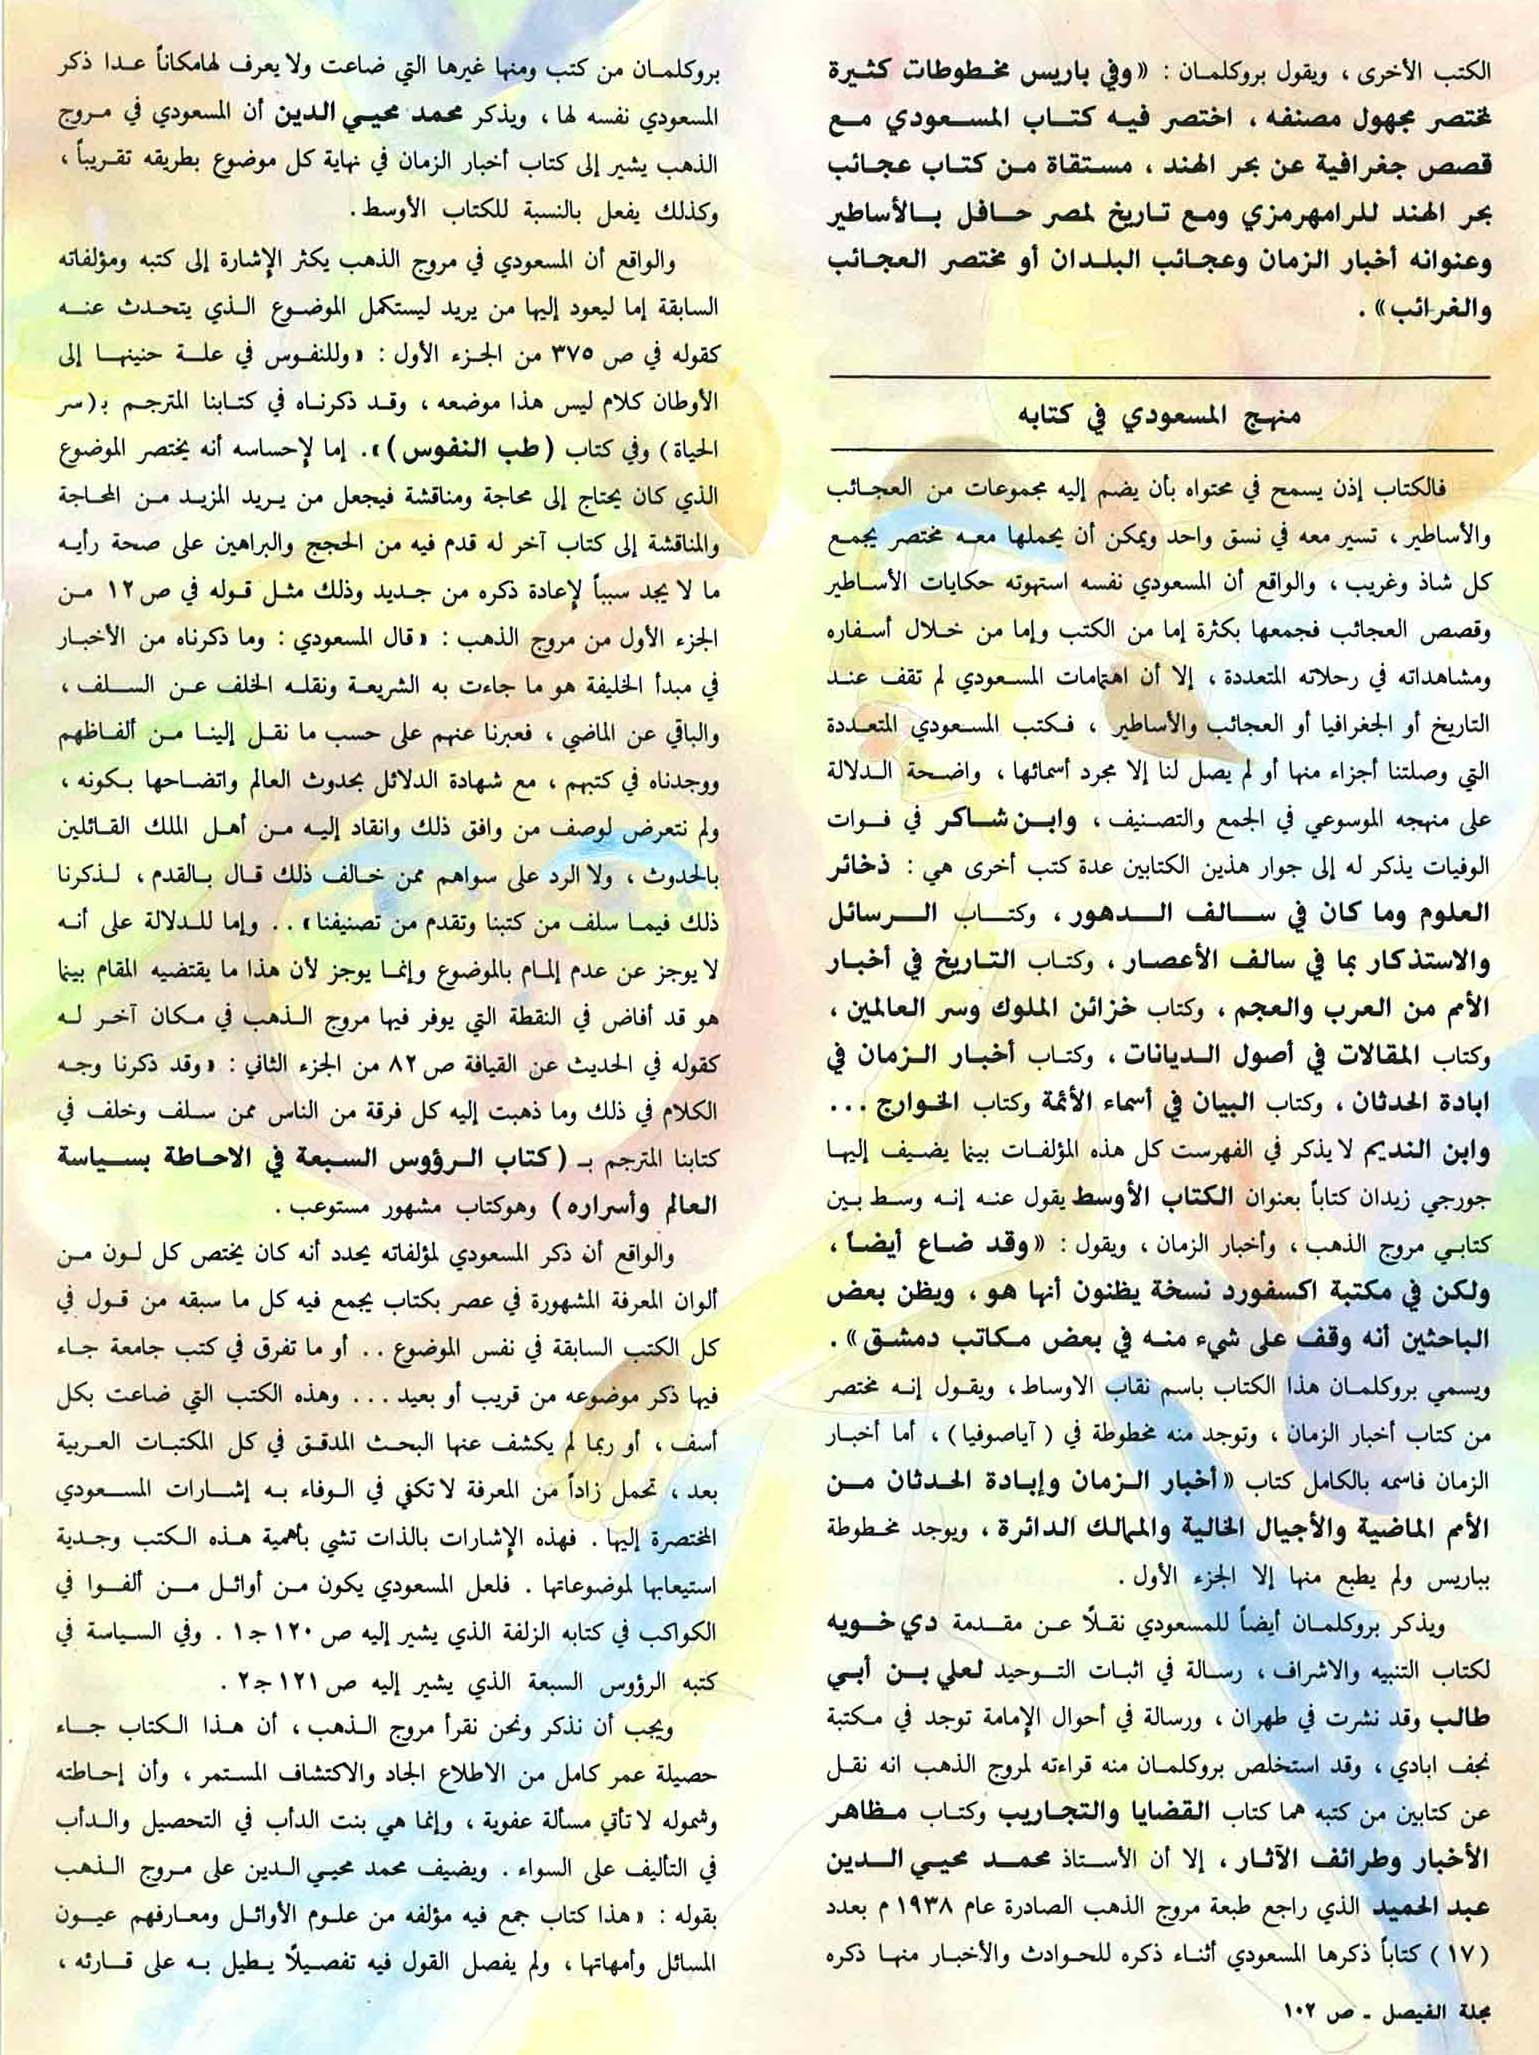 الكتب الأخرى ، ويقول بروكلمان : «وفي باريس مخطوطات كثيرة
لمختصر مجهول مصنفه ، اختصر فيه كتاب المسعودي مع
قصص جغرافية عن بحر الهند ، مستقاة من كتاب عجائب
بحر الهند للرامهرمزي ومع تاريخ لمصر حافل بالأساطير
وعنوانه أخبار الزمان وعجائب البلدان أو مختصر العجائب
والغرائب» .
منهج المسعودي في كتابه
فالكتاب إذن يسمح في محتواه بأن يضم إليه مجموعات من العجائب
والأساطير ، تسير معه في نسق واحد ويمكن أن يحملها معه مختصر يجمع
كل شاذ وغريب ، والواقع أن المسعودي نفسه استهوته حكايات الأساطير
وقصص العجائب فجمعها بكثرة إما من الكتب وإما من خلال أسفاره
ومشاهداته في رحلاته المتعددة ، إلا أن اهتمامات المسعودي لم تقف عند
التاريخ أو الجغرافيا أو العجائب والأساطير ، فكتب المسعودي المتعددة
التي وصلتنا أجزاء منها أو لم يصل لنا إلا مجرد أسمائها ، واضحة الدلالة
على منهجه الموسوعي في الجمع والتصنيف ، وابن شاكر في فوات
الوفيات يذكر له إلى جوار هذين الكتابين عدة كتب أخرى هي : ذخائر
العلوم وما كان في سالف الدهور ، وكتاب الرسائل
والاستذكار بما في سالف الأعصار ، وكتاب التاريخ في أخبار
الأمم من العرب والعجم ، وكتاب خزائن الملوك وسر العالمين ،
وكتاب المقالات في أصول الديانات ، وكتاب أخبار الزمان في
ابادة الحدثان ، وكتاب البيان في أسماء الأئمة وكتاب الخوارج ...
وابن النديم لا يذكر في الفهرست كل هذه المؤلفات بينما يضيف إليها
جورجي زيدان كتاباً بعنوان الكتاب الأوسط يقول عنه إنه وسط بين
كتابي مروج الذهب ، وأخبار الزمان ، ويقول : «وقد ضاع أيضاً ،
ولكن في مكتبة اكسفورد نسخة يظنون أنها هو ، ويظن بعض
الباحثين أنه وقف على شيء منه في بعض مكاتب دمشق» .
ويسمي بروكلمان هذا الكتاب باسم نقاب الاوساط ، ويقول إنه مختصر
من كتاب أخبار الزمان ، وتوجد منه مخطوطة في (آياصوفيا) ، أما أخبار
الزمان فاسمه بالكامل كتاب «أخبار الزمان وإبادة الحدثان من
الأمم الماضية والأجيال الخالية والممالك الدائرة ، ويوجد مخطوطة
بباريس ولم يطبع منها إلا الجزء الأول .
ويذكر بروكلمان أيضاً للمسعودي نقلاً عن مقدمة دي خويه
لكتاب التنبيه والاشراف ، رسالة في اثبات التوحيد لعلي بن أبي
طالب وقد نشرت في طهران ، ورسالة في أحوال الإمامة توجد في مكتبة
نجف ابادي ، وقد استخلص بروكلمان منه قراءته لمروج الذهب انه نقل
عن كتابين من كتبه هما كتاب القضايا والتجاريب وكتاب مظاهر
الأخبار وطرائف الآثار ، إلا أن الأستاذ محمد محيي الدين
عبد الحميد الذي راجع طبعة مروج الذهب الصادرة عام ١٩٣٨ م بعدد
(١٧) كتاباً ذكرها المسعودي أثناء ذكره للحوادث والأخبار منها ذكره
بروكلمان من كتب ومنها غيرها التي ضاعت ولا يعرف لها مكاناً عدا ذكر
المسعودي نفسه لها ، ويذكر محمد محيي الدين أن المسعودي في مروج
الذهب يشير إلى كتاب أخبار الزمان في نهاية كل موضوع بطريقه تقريباً ،
وكذلك يفعل بالنسبة للكتاب الأوسط .
والواقع أن المسعودي في مروج الذهب يكثر الإشارة إلى كتبه ومؤلفاته
السابقة إما ليعود إليها من يريد ليستكمل الموضوع الذي يتحدث عنه
كقوله في ص ٣٧٥ من الجزء الأول : «وللنفوس في علة حنينها إلى
الأوطان كلام ليس هذا موضعه ، وقد ذكرناه في كتابنا المترجم بـ (سر
الحياة) وفي كتاب (طب النفوس)» . إما لإحساسه أنه يختصر الموضوع
الذي كان يحتاج إلى محاجة ومناقشة فيجعل من يريد المزيد من المحاجة
والمناقشة إلى كتاب آخر له قدم فيه من الحجج والبراهين على صحة رأيه
ما لا يجد سبباً لإعادة ذكره من جديد وذلك مثل قوله في ص ١٢ من
الجزء الأول من مروج الذهب : «قال المسعودي : وما ذكرناه من الأخبار
في مبدأ الخليفة هو ما جاءت به الشريعة ونقله الخلف عن السلف ،
والباقي عن الماضي ، فعبرنا عنهم على حسب ما نقل إلينا من ألفاظهم
ووجدناه في كتبهم ، مع شهادة الدلائل بحدوث العالم واتضاحها بكونه ،
ولم نتعرض لوصف من وافق ذلك وانقاد إليه من أهل الملك القائلين
بالحدوث ، ولا الرد على سواهم ممن خالف ذلك قال بالقدم ، لذكرنا
ذلك فيما سلف من كتبنا وتقدم من تصنيفنا» .. وإما للدلالة على أنه
لا يوجز عن عدم إلمام بالموضوع وإنما يوجز لأن هذا ما يقتضيه المقام بينما
هو قد أفاض في النقطة التي يوفر فيها مروج الذهب في مكان آخر له
كقوله في الحديث عن القيافة ص ٨٢ من الجزء الثاني : «وقد ذكرنا وجه
الكلام في ذلك وما ذهبت إليه كل فرقة من الناس ممن سلف وخلف في
كتابنا المترجم بـ (كتاب الرؤوس السبعة في الاحاطة بسياسة
العالم وأسراره) وهوكتاب مشهور مستوعب .
والواقع أن ذكر المسعودي لمؤلفاته يحدد أنه كان يختص كل لون من
ألوان المعرفة المشهورة في عصر بكتاب يجمع فيه كل ما سبقه من قول في
كل الكتب السابقة في نفس الموضوع .. أو ما تفرق في كتب جامعة جاء
فيها ذكر موضوعه من قريب أو بعيد ... وهذه الكتب التي ضاعت بكل
أسف ، أو ربما لم يكشف عنها البحث المدقق في كل المكتبات العربية
بعد ، تحمل زاداً من المعرفة لا تكفي في الوفاء به إشارات المسعودي
المختصرة إليها . فهذه الإشارات بالذات تشي بأهمية هذه الكتب وجدية
استيعابها لموضوعاتها . فلعل المسعودي يكون من أوائل من ألفوا في
الكواكب في كتابه الزلفة الذي يشير إليه ص ١٢٠ جـ١ . وفي السياسة في
كتبه الرؤوس السبعة الذي يشير إليه ص ١٢١ جـ٢ .
ويجب أن نذكر ونحن نقرأ مروج الذهب ، أن هذا الكتاب جاء
حصيلة عمر كامل من الاطلاع الجاد والاكتشاف المستمر ، وأن إحاطته
وشموله لا تأتي مسألة عفوية ، وإنما هي بنت الدأب في التحصيل والدأب
في التأليف على السواء . ويضيف محمد محيي الدين على مروج الذهب
بقوله : «هذا كتاب جمع فيه مؤلفه من علوم الأوائل ومعارفهم عيون
المسائل وأمهاتها ، ولم يفصل القول فيه تفصيلاً يطيل به على قارئه ،
مجلة الفيصل ـ ص ١٠٢